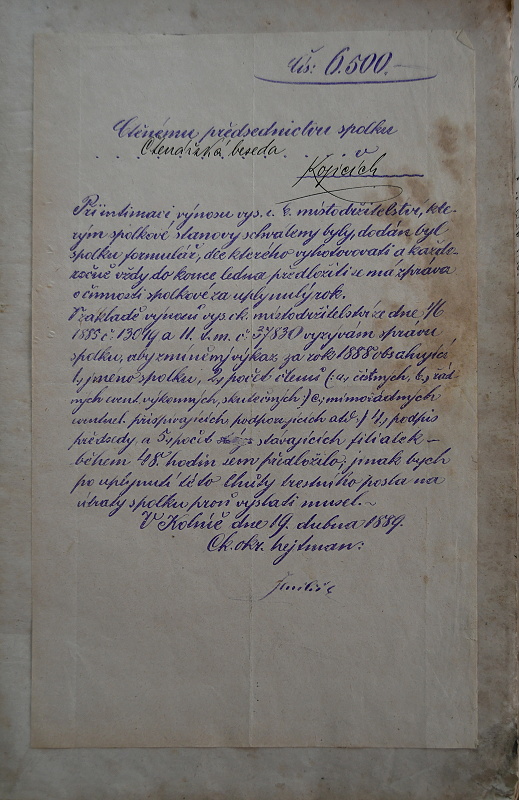 Čís: 6.500.—
Ctěnému předsednictvu spolku
Čtenářská beseda
v
Kojicích
Při intimaci výnosu vys. c. k. místodržitelství, kte-
rým spolkové stanovy schváleny byly, dodán byl
spolku formulář, dle kterého vyhotovovati a každo-
ročně vždy do konce ledna předložiti se má zpráva
o činnosti spolkové za uplynulý rok.
V základě výnosů vys. ck. místodržitelství ze dne 4/6
1885 č. 13019 a 11. t. m. č. 37830 vyzývám správu
spolku, aby zmíněný výkaz za rok 1888 obsahující
1, jmeno spolku, 2, počet členů (: a, čestných, b, řád-
ných event. výkonných, skutečných :) c, mimořádných
eventuel. přispívajících, podporujících atd :) 4, podpis
předsedy, a 5, počet stávajících filialek —
během 48 hodin sem předložilo, jinak bych
po uplynutí této lhůty trestního posla na
útraty spolku proň vyslati musel.—
V Kolíně dne 19. dubna 1889.
Ck. okr. hejtman: